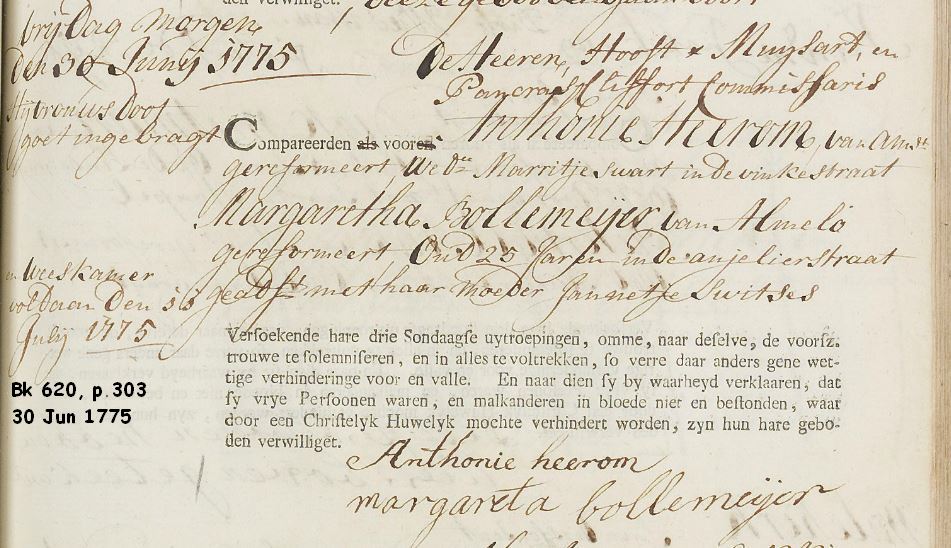 den verwilliget.
vrijdag morgen
den 30 Junij 1775
De Heeren, Hooft & Muijsart, en
Pancras Cliffort Commissaris
Hijtronius Doop
goet ingebragt
Compareerden als vooren Anthonie Heerom, van Amst
gereformeert Wedr Marritje Swart in de vinkestraat
Margaretha Bollemeijer van Almelo
gereformeert Oud 25 Jaren in de anjelierstraat
geadst met haar Moeder Jannetje Switses
en Weeskamer
voldaan Den
Julij 1775
Versoekende hare drie Sondaagse uytroepingen, omme, naar deselve, de voorsz.
trouwe te solemniseren, en in alles te voltrekken, so verre daar anders gene wet-
tige verhinderinge voor en valle. En naar dien sy by waarheyd verklaaren, dat
sy vrye Persoonen waren, en malkanderen in bloede niet en bestonden, waar
door een Christelyk Huwelyk mochte verhindert worden, zyn hun hare gebo-
den verwilliget.
Bk 620, p.303
30 Jun 1775
Anthonie heerom
margareta bollemeijer